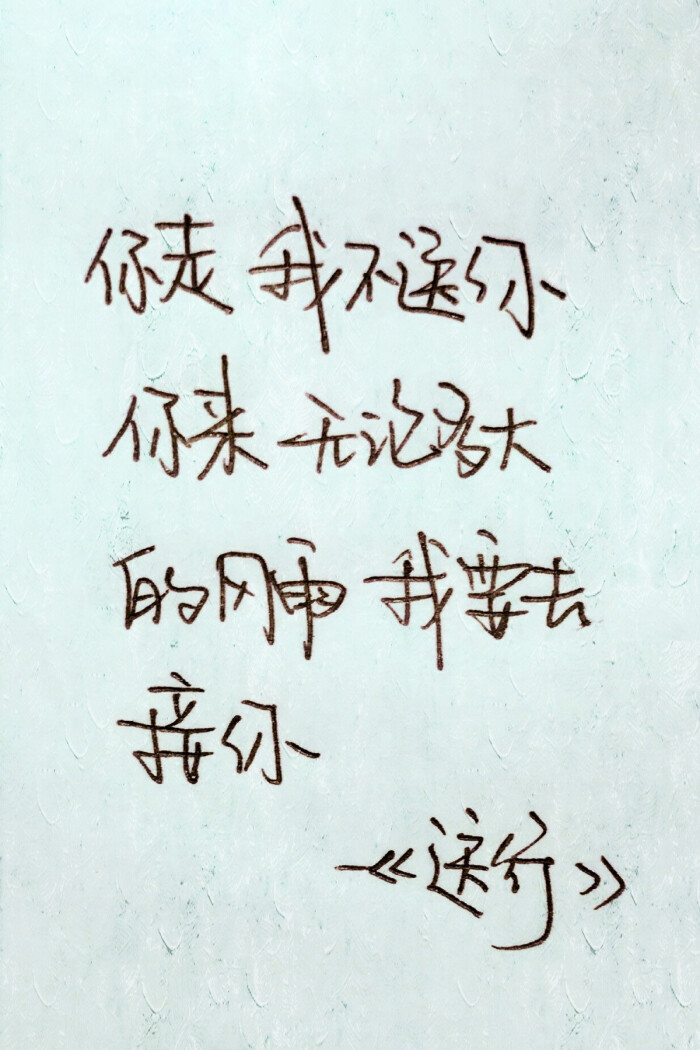 你走 我不送你
你来 无论多大
的风雨 我要去
接你
—《送行》